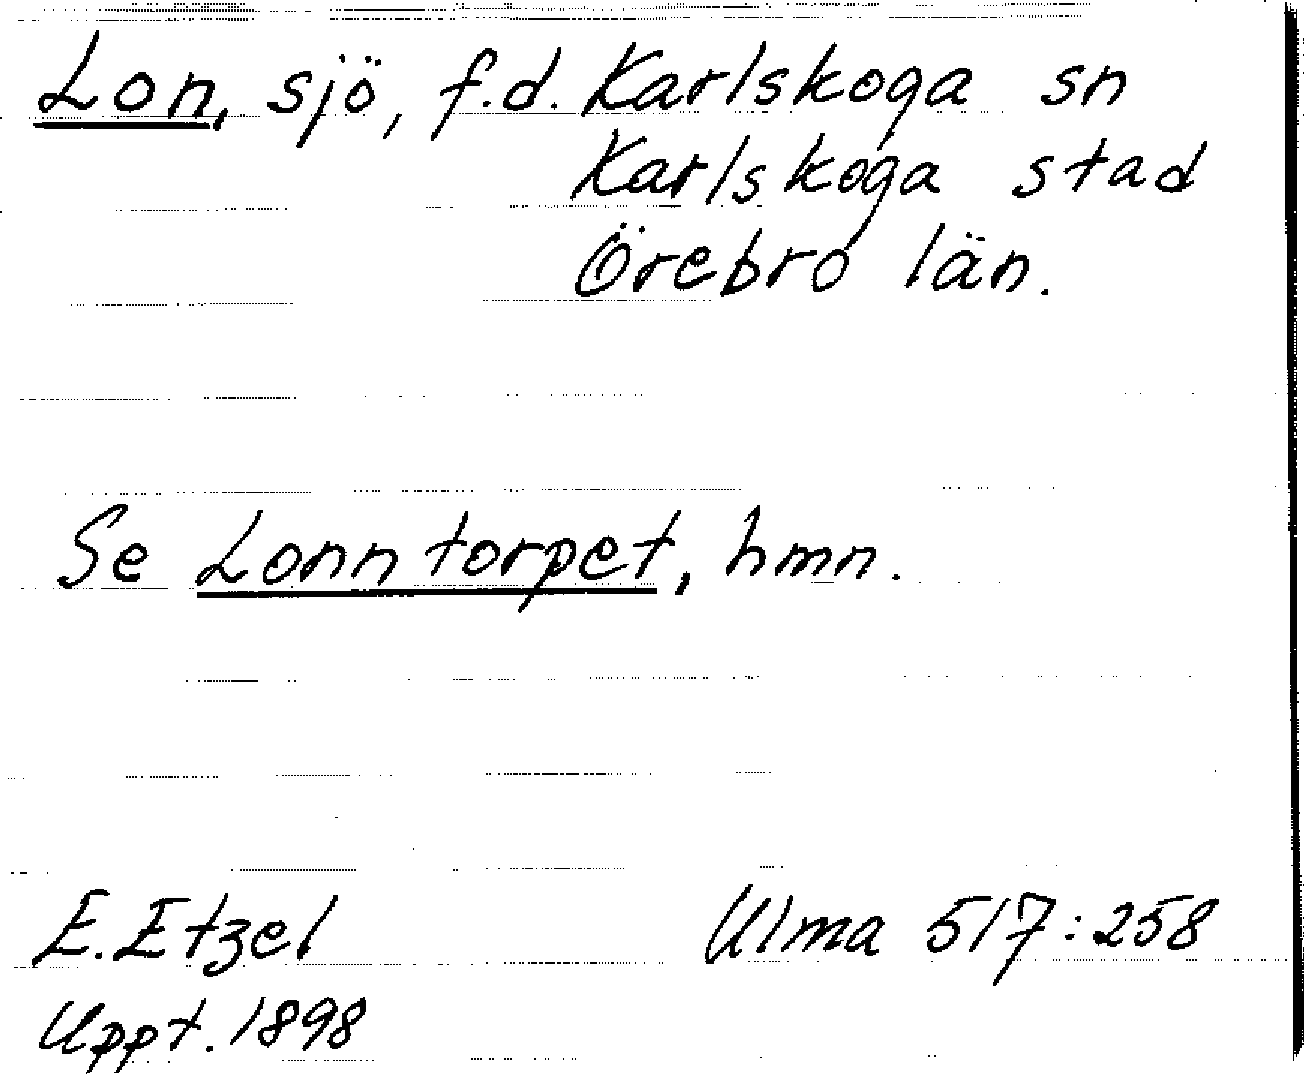 Lon, sjö, f.d. Karlskoga sn
Karlskoga stad
Örebro län.
Se Lonntorpet, hmn.
E. Etzel Ulma 517:258
Uppt. 1898